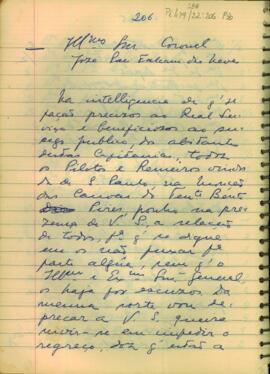 206.
206
— Illmo Snr Coronel
José Paes Falcam das Neves
Na intelligencia de q' se
fação precisos ao Real Ser-
viço e beneficios ao su-
cego publico dos abitantes
destas Capitanias, todos
os Pilotos e Remeiros vindos
de S. Paulo, na monção
das Canoas do Tente Bento
Pires, ponho na pre-
zença de V. S. a relação
de todos, pa q' se digne
em os não puxar pa
parte algua, nem q' o
Illmo e Exmo Snr General,
os haja por escuzos da
mesma sorte vou de-
precar a V. S. queira
unir-se em impedir o
regreço, dos q' estão a